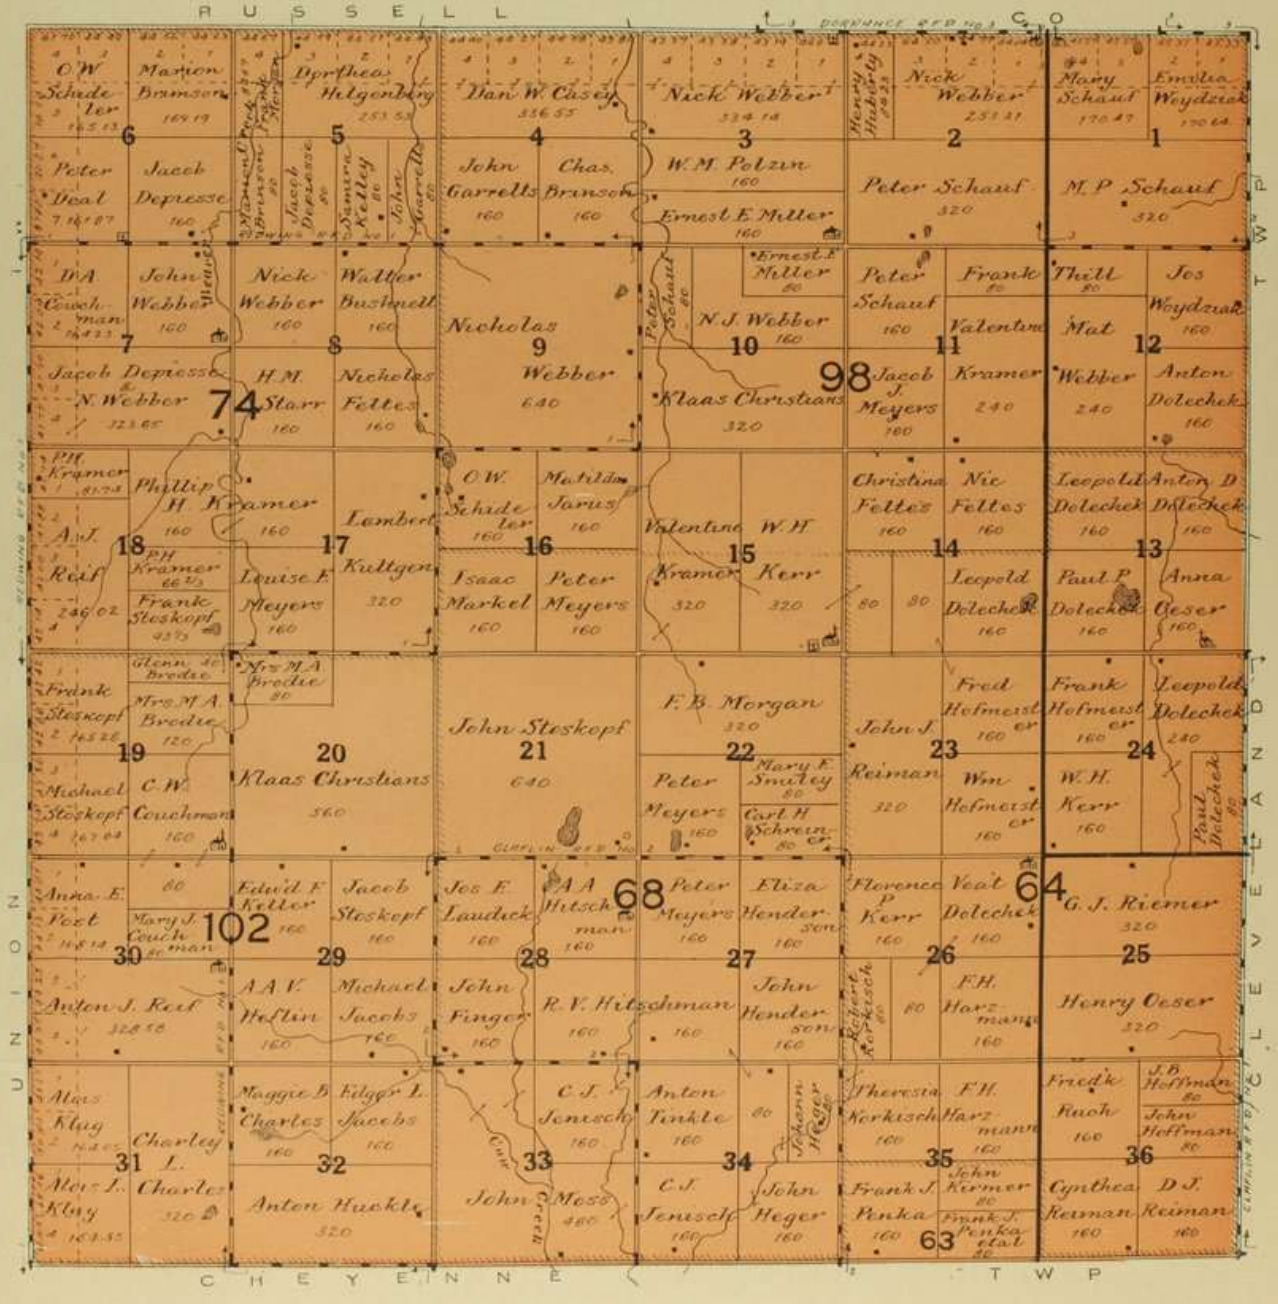 RUSSELL CO
DORRANCE RFD NO 3
O W
Schideler
165.13
6
Marion
Brinson
169 19
Peter
Deal
Jacob
Depiesse
160
Frank
Dorthea
Hilgenberg
253 53
5
Marion
Brinson
80
Jacob
Depiesse
80
Samira
Kelley
80
John
Garrelts
80
Dan W. Casey
336 55
4
John
Garrelts
160
Chas.
Brinson
160
Nick Webber
334 14
3
W. M. Polzin
160
Ernest E. Miller
160
Henry
Huberty
Nick
Webber
251 21
2
Peter Schauf
320
Mary
Schauf
170 47
Emilia
Woydziak
170 64
1
M. P. Schauf
320
TWP
D A
Couch-
man
7
John
Webber
160
Beaver
Jacob Depiesse
& N. Webber
323 65
74
Nick
Webber
160
Walter
Bushnell
160
8
H. M.
Starr
160
Nicholas
Feltes
160
Nicholas
9
Webber
640
Peter
Schauf
80
Ernest E
Miller
80
N. J. Webber
160
10
Klaas Christians
320
98
Peter
Schauf
160
Frank
80
Valentine
11
Jacob
J.
Meyers
160
Kramer
240
Thill
80
Mat
Webber
240
Jos
Woydziak
160
12
Anton
Dolechek
160
P. H.
Kramer
A. J.
Reif
246 02
18
Phillip
H. Kramer
160
160
P H
Kramer
66 2/3
Frank
Stoskopf
93 1/3
17
Lambert
Kultgen
320
Louise F.
Meyers
160
O W.
Schideler
160
Matilda
Jarus
160
16
Isaac
Markel
160
Peter
Meyers
160
Valentine
Kramer
320
W. H.
Kerr
320
15
Christina
Feltes
160
Nic
Feltes
160
14
80
80
Leopold
Dolechek
160
Leopold
Dolechek
160
Anton D
Dolechek
160
13
Paul P
Dolechek
160
Anna
Oeser
160
Frank
Stoskopf
165 28
Glenn 40
Brodie
Mrs. M. A.
Brodie
120
19
Michael
Stoskopf
167 04
C. W.
Couchman
160
Mrs M. A
Brodie
80
20
Klaas Christians
560
John Stoskopf
21
640
CLAFLIN RFD NO 2
F. B. Morgan
320
22
Peter
Meyers
160
Mary E.
Smiley
80
Carl H
Schreiner
80
John J.
Reiman
320
23
Fred
Hofmeister
160
Wm
Hofmeister
160
Frank
Hofmeister
160
Leopold
Dolechek
240
24
W. H.
Kerr
160
Paul
Dolechek
80
Anna E.
Post
80
Mary J.
Couchman
80
102
30
Anton J. Reif
328 58
Edw'd F
Keller
160
Jacob
Stoskopf
160
29
A A V.
Heflin
160
Michael
Jacobs
160
Jos E.
Laudick
160
A A
Hitschman
160
28
John
Finger
160
R. V. Hitschman
160
160
68
Peter
Meyers
160
Eliza
Henderson
160
27
John
Henderson
160
Florence
P
Kerr
160
Veat
Dolechek
160
64
26
Robert
Korkisch
80
80
F. H.
Harzmann
160
G. J. Riemer
320
25
Henry Oeser
320
Alois
Klug
31
Alois L.
Klug
Charley
L.
Charles
320
Maggie B
Charles
160
Edgar L.
Jacobs
160
32
Anton Huckle
320
C. J.
Jenisch
160
33
John Moss
480
Cow Creek
Anton
Tinkle
160
80
Johann
Heger
80
34
C. J.
Jenisch
160
John
Heger
160
Theresia
Korkisch
160
F. H.
Harzmann
160
35
Frank J.
Penka
160
John
Kirmer
80
Frank J.
Penka
etal
80
63
Fried'k
Ruch
160
J. B
Hoffman
80
John
Hoffman
80
36
Cynthea
Reiman
160
D J.
Reiman
160
UNION
CLEVELAND
CHEYENNE TWP